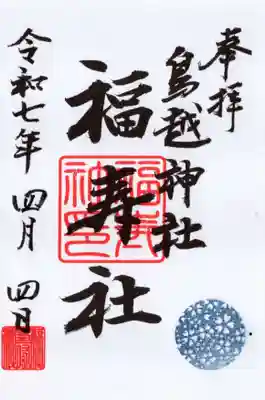 奉拝
鳥越神社
福寿社
令和七年 四月 四日